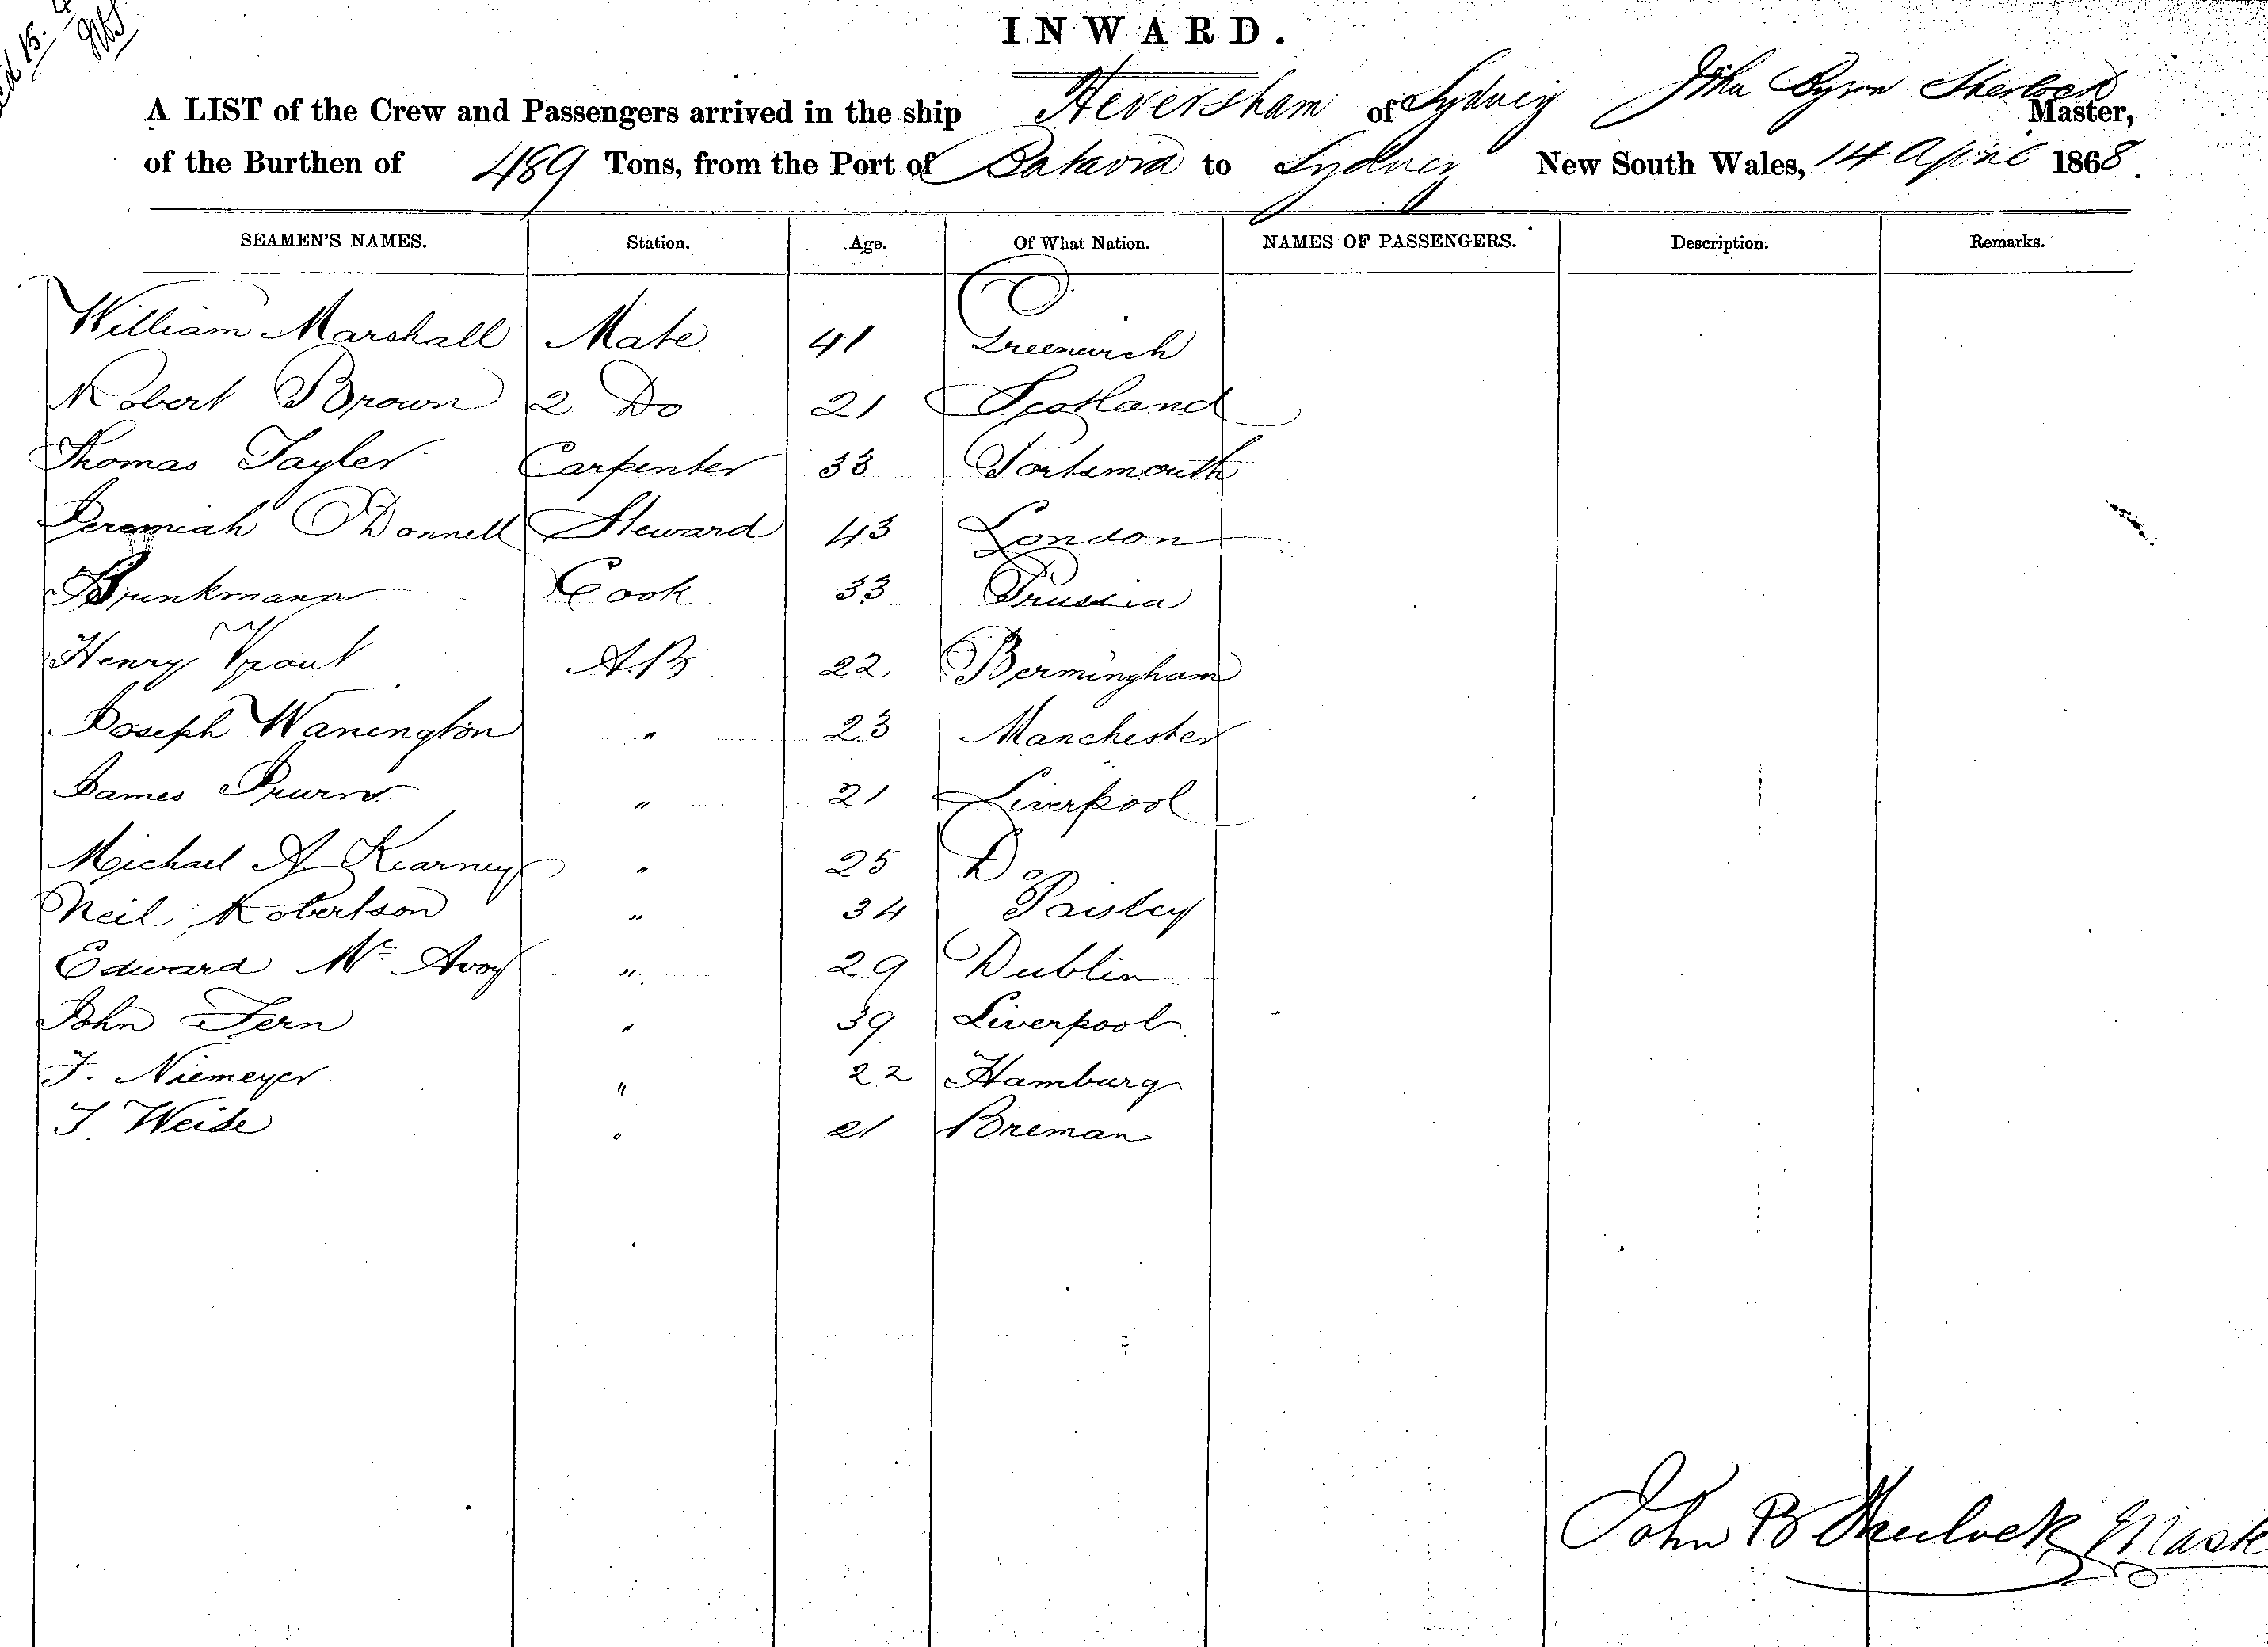 INWARD.
A LIST of the Crew and Passengers arrived in the ship Heversham of Sydney John Byron Sherlock Master,
of the Burthen of 489 Tons, from the Port of Batavia to Sydney New South Wales, 14 April 1868.
SEAMEN'S NAMES. Station. Age. Of What Nation. NAMES OF PASSENGERS. Description. Remarks.
William Marshall Mate 41 Greenwich
Robert Brown 2 Do 21 Scotland
Thomas Tayler Carpenter 33 Portsmouth
Jeremiah O'Donnell Steward 43 London
Brunkmann Cook 33 Prussia
Henry A.B 22 Bermingham
Joseph Wanington " 23 Manchester
James " 21 Liverpool
Michael A Kearney " 25 Do
Neil Robertson " 34 Paisley
Edward Mc Avoy " 29 Dublin
John Fern " 39 Liverpool
F. Niemeyer " 22 Hamburg
Weise " 21 Breman
John B Sherlock Maste